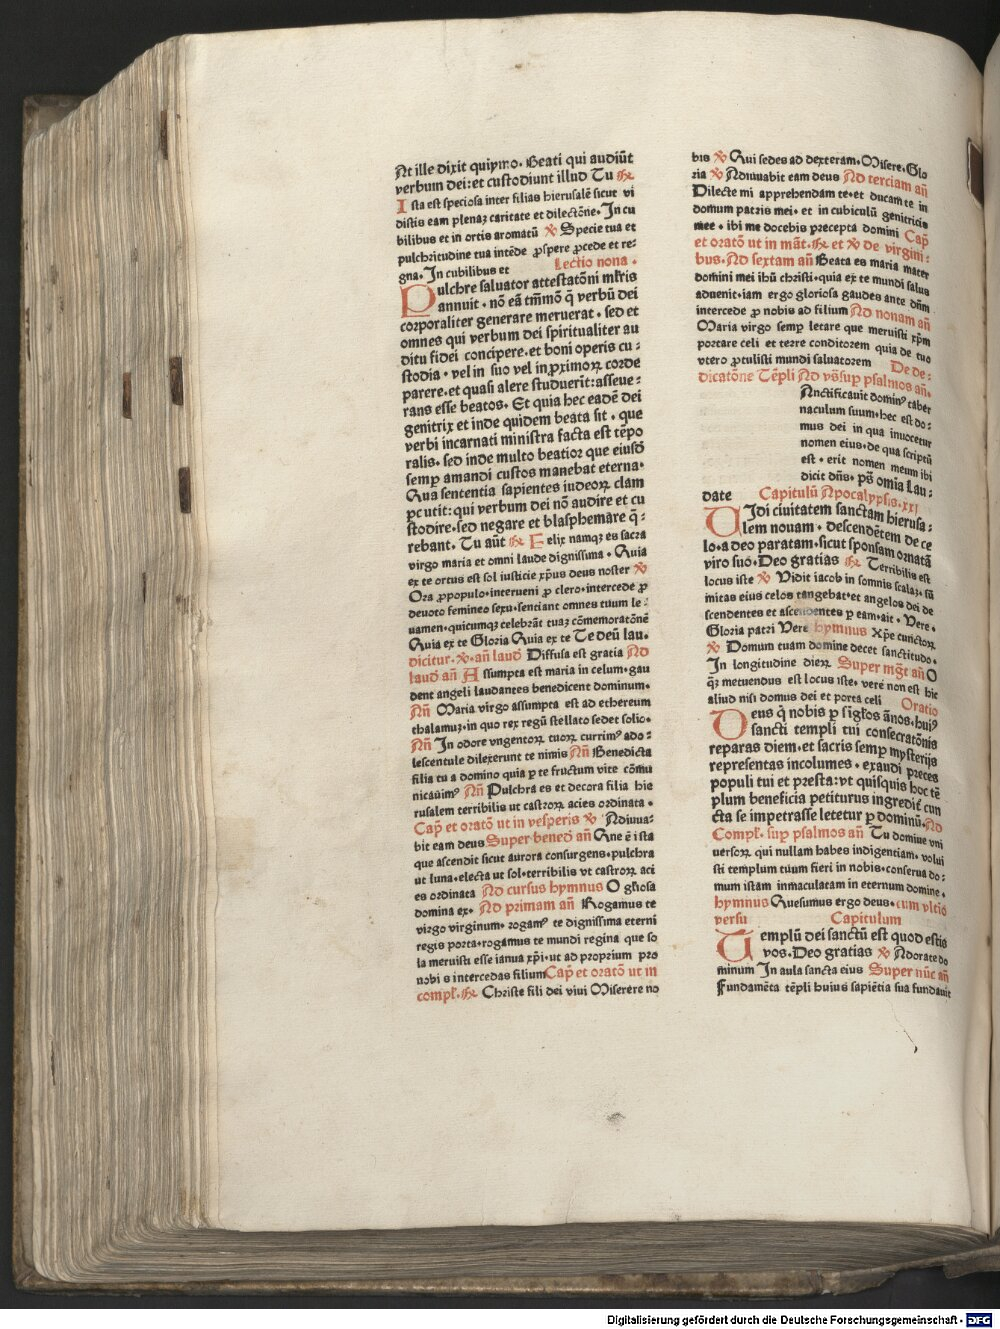 At ille dixit quiymo. Beati qui audiūt
verbum dei: et custodiunt illud Tu ℟.
Ista est speciosa inter filias hierusalē sicut vi
distis eam plenaꝫ caritate et dilectōne. In cu
bilibus et in ortis aromatū ℣ Specie tua et
pulchritudine tua intēde ꝓspere ꝓcede et re⸗
gna. In cubilibus et Lectio nona.
Pulchre saluator attestatōni mr̄is
annuit. nō eā tm̄mō q̄ verbū dei
corporaliter generare meruerat. sed et
omnes qui verbum dei spiritualiter au
ditu fidei concipere. et boni operis cu⸗
stodia. vel in suo vel in ꝓximoꝝ corde
parere. et quasi alere studuerīt: asseue⸗
rans esse beatos. Et quia hec eadē dei
genitrix et inde quidem beata sit. que
verbi incarnati ministra facta est tēpo
ralis. sed inde multo beatior que eiusd̄
semꝑ amandi custos manebat eterna.
Qua sententia sapientes iudeoꝝ clam
ꝑcutit: qui verbum dei nō audire et cu
stodire. sed negare et blasphemare q̄⸗
rebant. Tu aūt ℟ Felix namqꝫ es sacra
virgo maria et omni laude dignissima. Quia
ex te ortus est sol iusticie xp̄us deus noster ℣
Ora ꝓpopulo. interueni ꝓ clero. intercede ꝓ
deuoto femineo sexu. sentiant omnes tuum le⸗
uamen. quicumqꝫ celebrāt tuaꝫ cōmemoratōnē
Quia ex te Gloria Quia ex te Te deū lau.
dicitur. ℣. añ laud̄ Diffusa est gratia Ad
laud̄ añ Assumpta est maria in celum. gau
dent angeli laudantes benedicent dominum.
Añ Maria virgo assumpta est ad ethereum
thalamuꝫ. in quo rex regū stellato sedet solio.
Añ In odore vngentoꝝ tuoꝝ currimꝰ ado⸗
lescentule dilexerunt te nimis Añ Benedicta
filia tu a domino quia ꝑ te fructum vite cōmu
nicauimꝰ Añ Pulchra es et decora filia hie
rusalem terribilis ut castroꝝ acies ordinata.
Cap̄ et oratō ut in vesperis ℣ Adiuua⸗
bit eam deus Super bened̄ añ Que ē ista
que ascendit sicut aurora consurgens. pulchra
ut luna. electa ut sol. terribilis vt castroꝝ aci
es ordinata Ad cursus hymnus O gl̄iosa
domina ex. Ad primam añ Rogamus te
virgo virginum. rogamꝰ te dignissima eterni
regis porta. rogamus te mundi regina que so
la meruisti esse ianua xp̄i. ut ad proprium pro
nobis intercedas filium Cap̄ et oratō ut in
compl̄. ℟ Christe fili dei viui Miserere no
bis ℣ Qui sedes ad dexteram. Misere. Glo
ria ℣ Adiuuabit eam deus Ad terciam añ
Dilecte mi apprehendam te. et ducam te in
domum patris mei. et in cubiculū genitricis
mee. ibi me docebis precepta domini Cap̄
et oratō ut in māt. ℟ et ℣ de virgini⸗
bus. Ad sextam añ Beata es maria mater
domini mei ihū christi. quia ex te mundi salus
aduenit. iam ergo gloriosa gaudes ante dn̄m
intercede ꝓ nobis ad filium Ad nonam añ
Maria virgo semꝑ letare que meruisti xp̄m
portare celi et terre conditorem quia de tuo
vtero ꝓtulisti mundi saluatorem De de⸗
dicatōne Tēpli Ad vs̄suꝑ psalmos añ.
Anctificauit dominꝰ taber
naculum suum. hec est do⸗
mus dei in qua inuocetur
nomen eius. de qua scriptū
est. erit nomen meum ibi
dicit dn̄s. pš omia Lau⸗
date Capitulū Apocalypsis. xxi
Uidi ciuitatem sanctam hierusa⸗
lem nouam. descendētem de ce
lo. a deo paratam. sicut sponsam ornatā
viro suo. Deo gratias ℟ Terribilis est
locus iste ℣ Vidit iacob in somnis scalaꝫ. sū
mitas eius celos tangebat. et angelos dei de
scendentes et ascendentes ꝑ eam. ait. Vere.
Gloria patri Vere hymnus Xp̄e cunctoꝝ
℣ Domum tuam domine decet sanctitudo.
In longitudine dieꝝ Super mg̅t añ O
q̄ꝫ metuendus est locus iste. vere non est hic
aliud nisi domus dei et porta celi Oratio
Deus q̄ nobis ꝑ sigl̄os ānos. huiꝰ
sancti templi tui consecratōnis
reparas diem. et sacris semꝑ mysterijs
representas incolumes. exaudi preces
populi tui et presta: vt quisquis hoc tē
plum beneficia petiturus ingredit̄ cun
cta se impetrasse letetur ꝑ dominū. Ad
Compl̄. suꝑ psalmos añ Tu domine vni
uersoꝝ qui nullam habes indigentiam. volui
sti templum tuum fieri in nobis. conserua do⸗
mum istam inmaculatam in eternum domine.
hymnus Quesumus ergo deus. cum vltīo
versu Capitulum
Templū dei sanctū est quod estis
vos. Deo gratias ℣ Adorate do
minum In aula sancta eius Super nūc añ
Fundamēta tēpli huius sapiētia sua fundauit
Digitalisierung gefördert durch die Deutsche Forschungsgemeinschaft - DFG